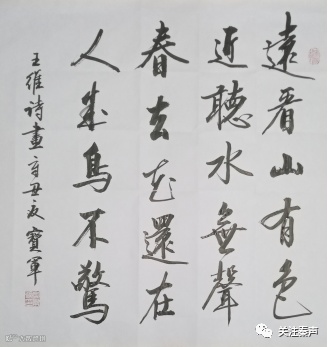 遠看山有色
近聽水無聲
春去花還在
人來鳥不驚
王維詩畫辛丑夏寶軍
关注秦声